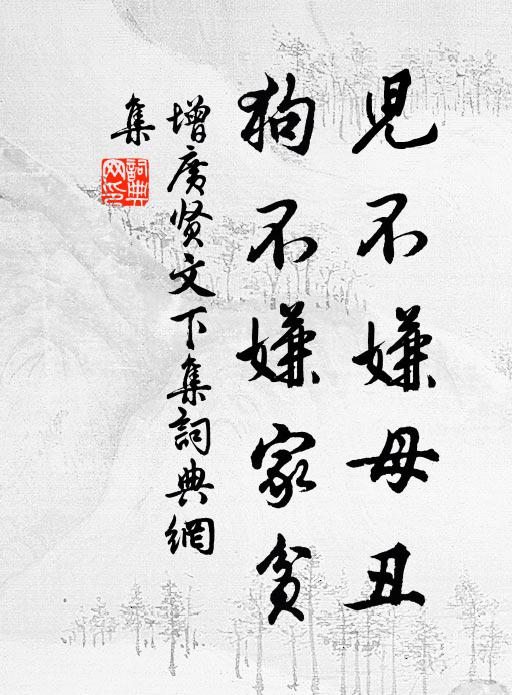 兒不嫌母丑
狗不嫌家貧
增廣贤文下集詞典網
集
詞典
网印